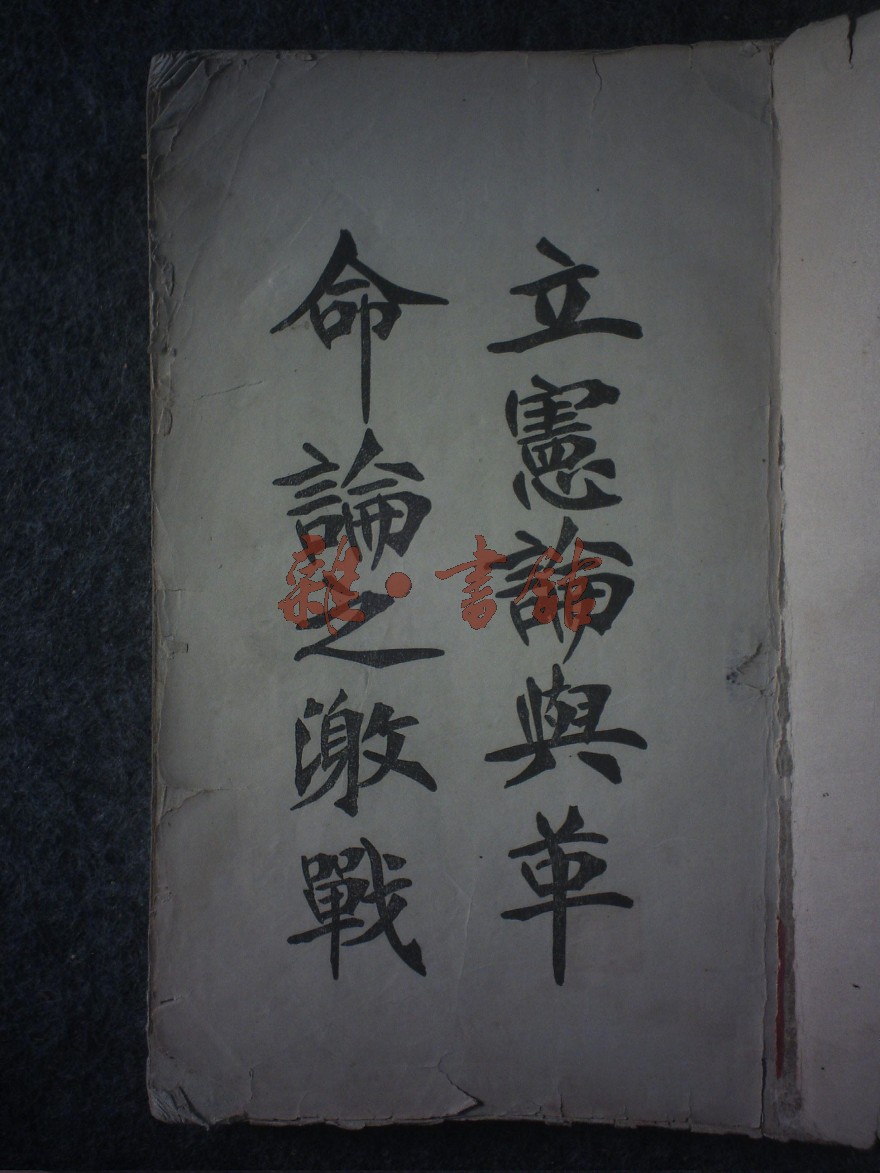 立憲論與革
命論之激戰
雜·書館